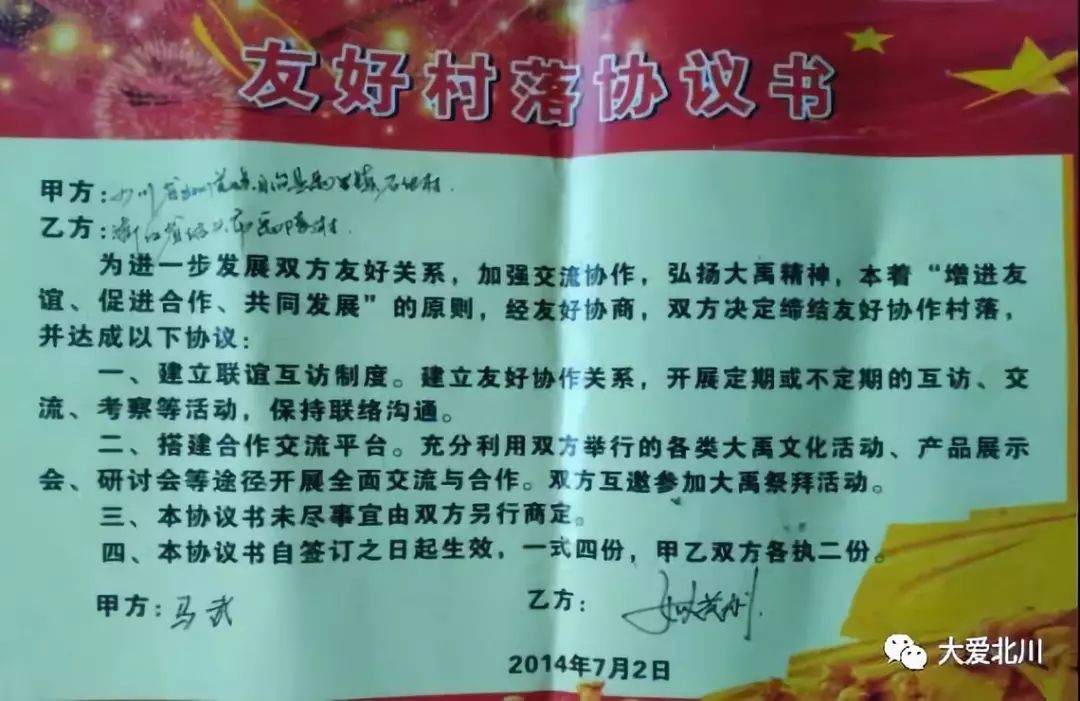 友好村落协议书
甲方：四川省北川羌族自治县禹里镇石纽村
乙方：浙江省绍兴市禹陵村
为进一步发展双方友好关系，加强交流协作，弘扬大禹精神，本着“增进友
谊、促进合作、共同发展”的原则，经友好协商，双方决定缔结友好协作村落，
并达成以下协议：
一、建立联谊互访制度。建立友好协作关系，开展定期或不定期的互访、交
流、考察等活动，保持联络沟通。
二、搭建合作交流平台。充分利用双方举行的各类大禹文化活动、产品展示
会、研讨会等途径开展全面交流与合作。双方互邀参加大禹祭拜活动。
三、本协议书未尽事宜由双方另行商定。
四、本协议书自签订之日起生效，一式四份，甲乙双方各执二份。
甲方：马武
乙方：
2014年7月2日
大爱北川